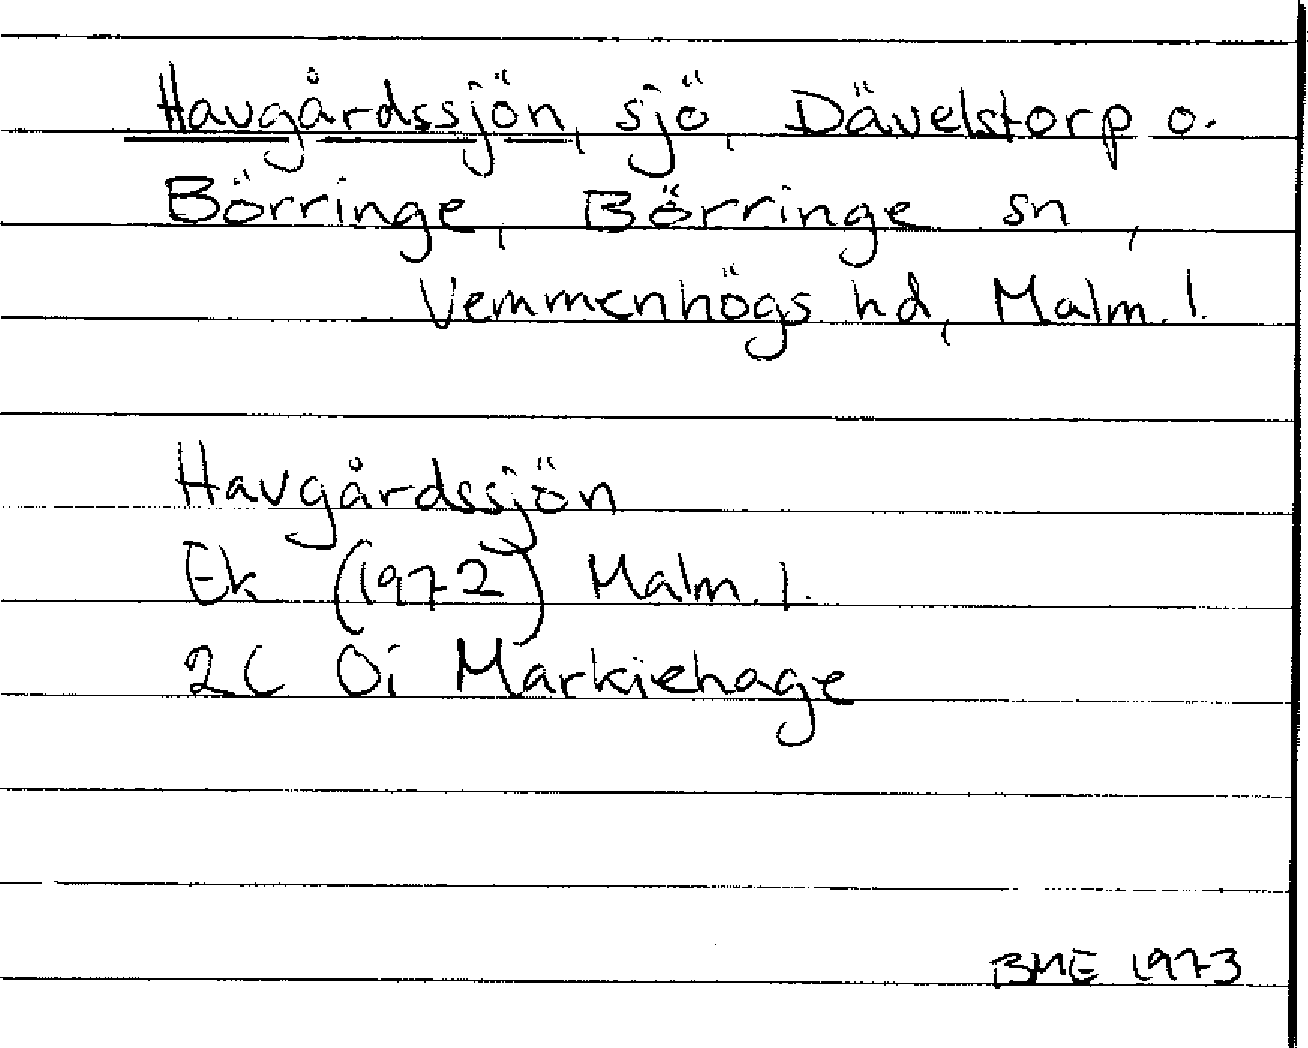 Havgårdssjön, sjö, Dävelstorp o.
Börringe, Börringe sn,
Vemmenhögs hd, Malm. l.
Havgårdssjön
Ek (1972) Malm. l.
2C 0i Markiehage
BME 1973